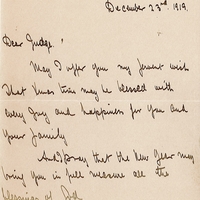 December 23rd 1919.
Dear Judge:
May I offer you my fervent wish
that Xmas time may be blessed with
every joy and happiness for you and
your family
And I pray that the New Year may
bring you in full measure all the
blessings of God